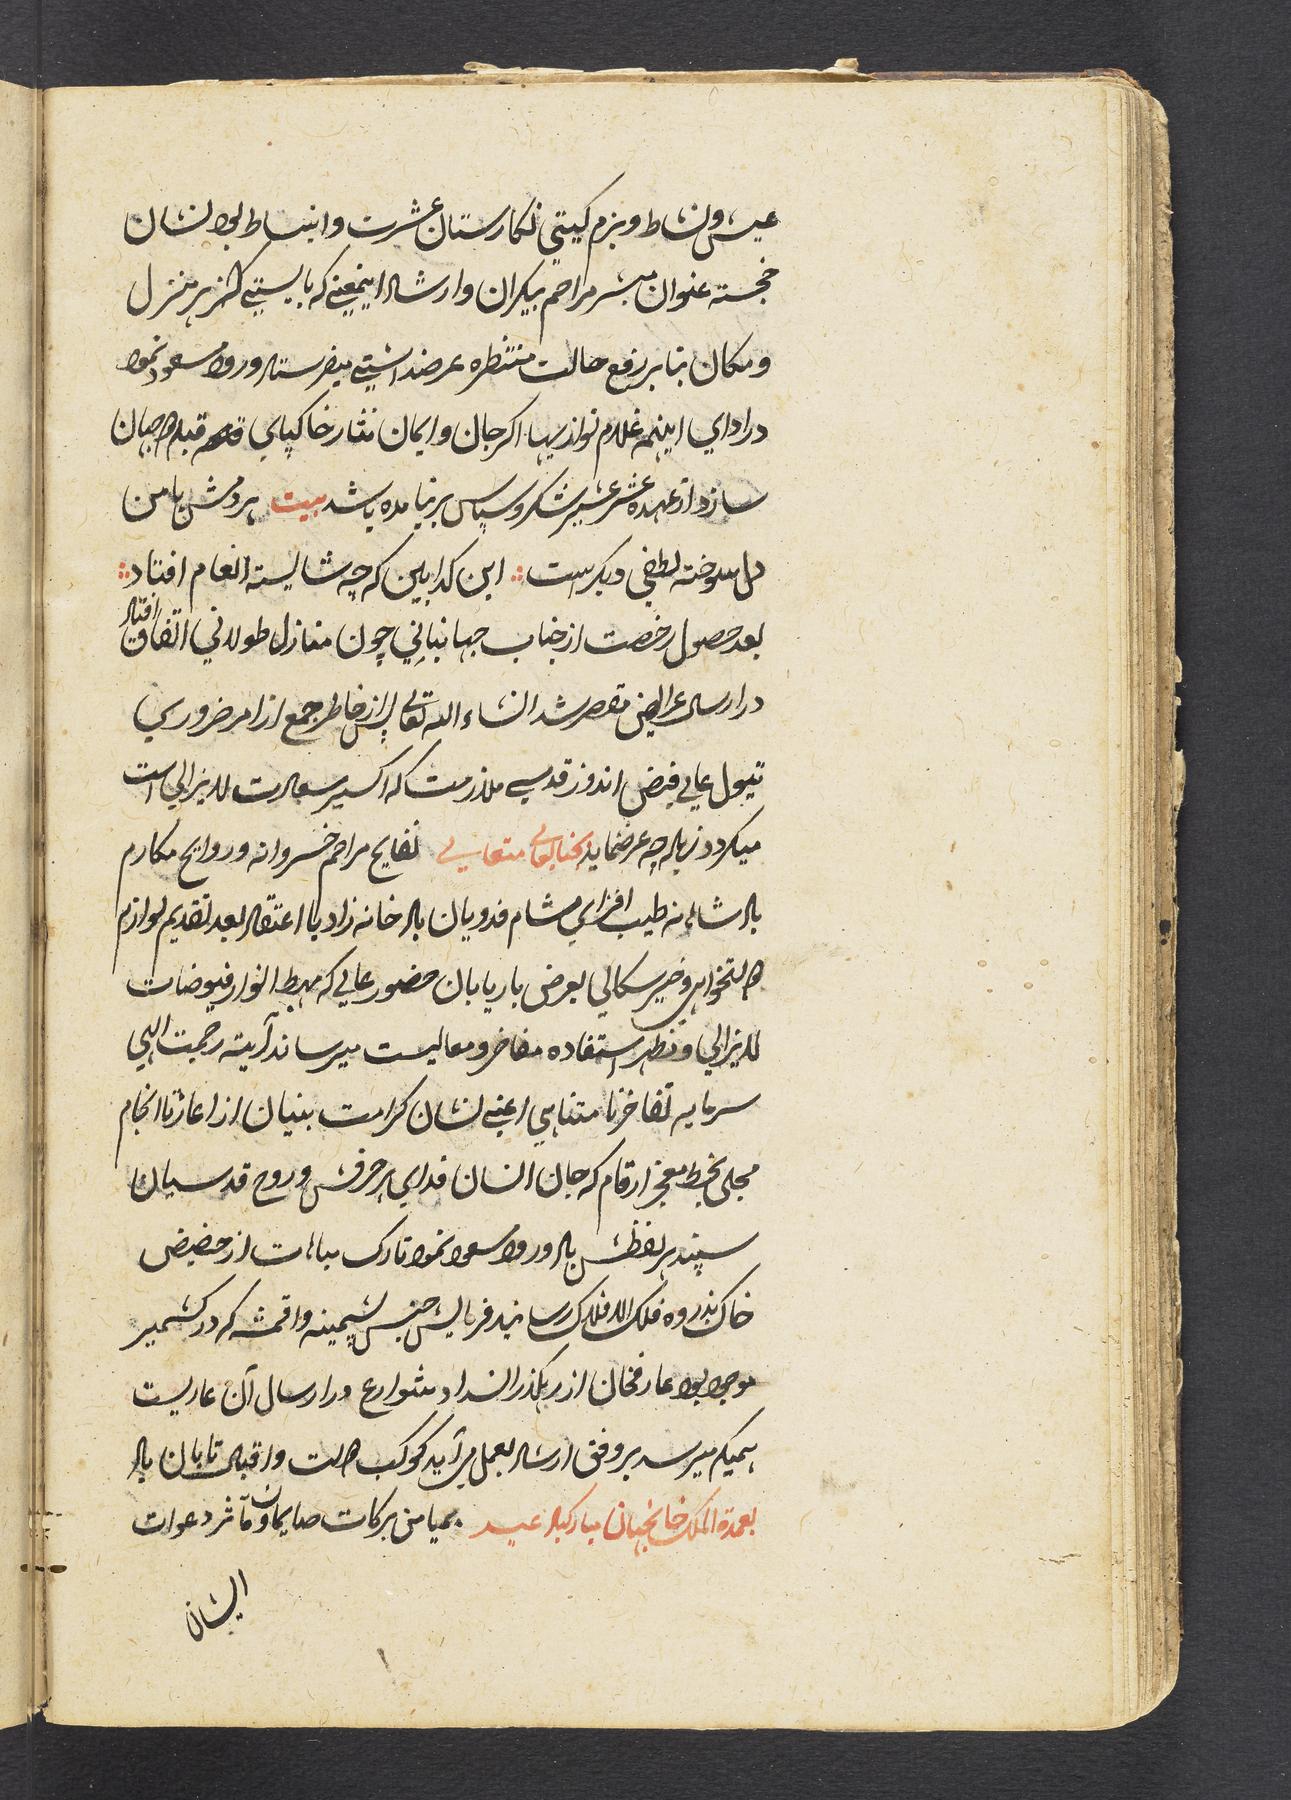 عیش و نشاط و بزم کیتی نکارستان عشرت و انبساط بود نشان
خجسته عنوان مبشر مراحم بیکران و ارشاد اینمعنی که بایستی از هر منزل
و مکان بنابر رفع حالت منتظره عرضداشتی میفرستاد ورود مسعود نمود
در ادای اینهمه غلام نوازیها اکر جان و ایمان نثار خاکپای قبله جهان
سازد از عهده عشر عشیر شکر و سپاس برنیامده باشد بیت هردمش با من
دلسوخته لطفی دکرست این کدا بین که چه شایسته انعام افتاد
بعد حصول رخصت از جناب جهانبانی چون منازل طولانی اتفاق افتاد
در ارسال عرایض مقصر شد انشاء الله تعالی پس از خاطر جمع از امر ضروری
تیول عالی فیض اندوز قدسی ملازمت که اکسیر سعادت لایزالی است
میکردد زیاده چه عرضنماید بجناب عالی متعالی نفایح مراحم خسروانه و روایح مکارم
بادشاهانه طیب افزای مشام فدویان باد خانه زاد با اعتقاد بعد تقدیم لوازم
دولتخواهی و خیرسکالی بعرض باریابان حضور عالی که مهبط انوار فیوضات
لایزالی و استفاده مفاخر و معالیست میرساند آیته رحمت الهی
سرمایه تفاخر نامتناهی اعنی نشان کرامت بنیان از اغاز تا انجام
مجلی بخط معجز ارقام که جان انسان فدای هر حرفش و روح قدسیان
سپند هر لفظش باد ورود مسعود نموده تارک مباهات از حضیض
خاک بذروه فلک الافلاک رسانید فرمایش جنس پشمینه و اقمشه که در کشمیر
موجود بود عارفخان از رهکذر انسداد شوارع در ارسال آن عاریست
بروفق ارشاد بعمل می آید کوکب دولت و اقبال تابان باد
بعمدة الملک خانجهان مبارکباد عید بمیامن برکات صایمان و مآثر دعوات
ایشان